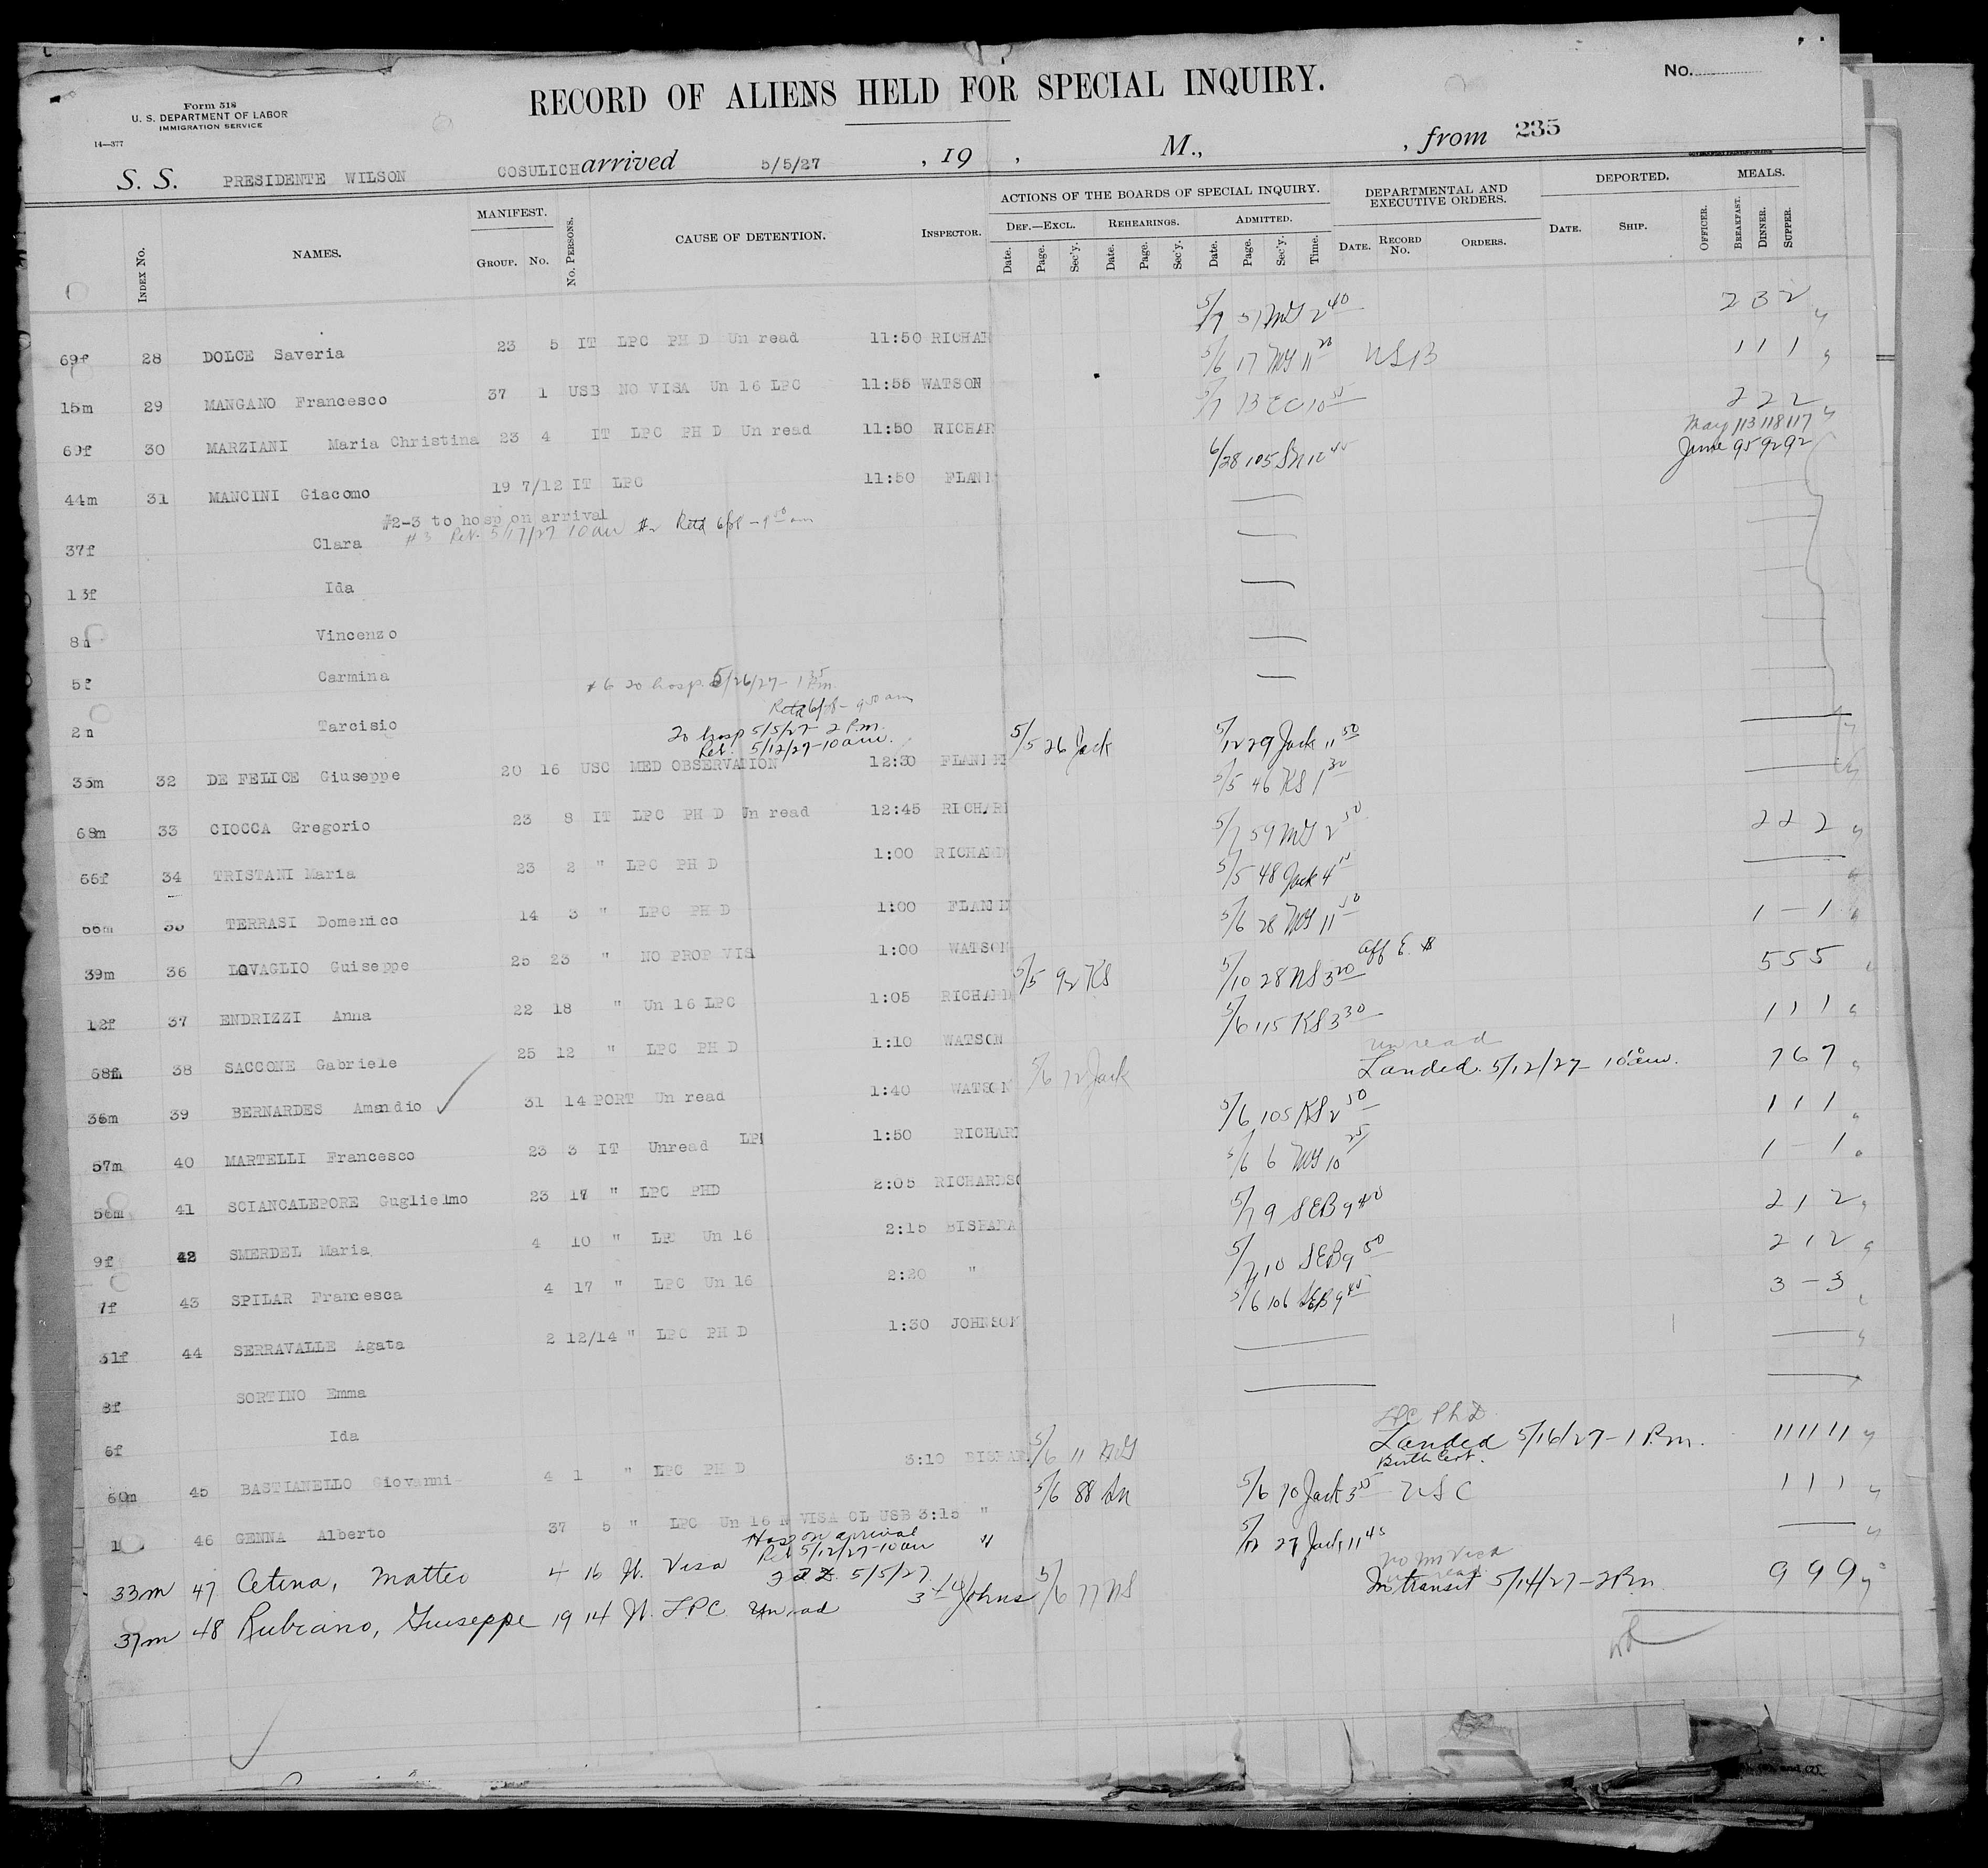 Form 518
U. S. DEPARTMENT OF LABOR
IMMIGRATION SERVICE
14—377
RECORD OF ALIENS HELD FOR SPECIAL INQUIRY.
No.
S. S. PRESIDENTE WILSON COSULICH arrived 5/5/27, 19 , M., , from 235
INDEX No. NAMES. MANIFEST. GROUP. No. No. PERSONS. CAUSE OF DETENTION. INSPECTOR. ACTIONS OF THE BOARDS OF SPECIAL INQUIRY. DEF.—EXCL. Date. Page. Sec'y. REHEARINGS. Date. Page. Sec'y. ADMITTED. Date. Page. Sec'y. Time. DEPARTMENTAL AND EXECUTIVE ORDERS. DATE. RECORD No. ORDERS. DEPORTED. DATE. SHIP. OFFICER. MEALS. BREAKFAST. DINNER. SUPPER.
69f 28 DOLCE Saveria 23 5 IT LPC PH D Un read 11:50 RICHAR 5/7 51 MG 2 40 2 3 2
15m 29 MANGANO Francesco 37 1 USB NO VISA Un 16 LPC 11:55 WATSON 5/6 17 MG 11 20 USB 1 1 1
69f 30 MARZIANI Maria Christina 23 4 IT LPC PH D Un read 11:50 RICHAR 5/7 13 EC 10 35 2 2 2
May 113 118 117
44m 31 MANCINI Giacomo 19 7/12 IT LPC 11:50 FLAN 6/28 105 SN 12 45 June 95 92 92
#2-3 to hosp on arrival
#3 Ret. 5/17/27 10 am #2 Retd 6/8 - 9 50 am
37f Clara
13f Ida
8m Vincenzo
5f Carmina
#6 to hosp. 5/26/27 - 1 35 Pm.
Retd 6/8 - 9 50 am
2m Tarcisio
To hosp 5/5/27 - 2 P.m.
Ret. 5/12/27 - 10 am.
35m 32 DE FELICE Giuseppe 20 16 USC MED OBSERVATION 12:30 FLAN 5/5 26 Jack 5/12 29 Jack 11 50
68m 33 CIOCCA Gregorio 23 8 IT LPC PH D Un read 12:45 RICHAR 5/5 46 KS 1 30
66f 34 TRISTANI Maria 23 2 " LPC PH D 1:00 RICHARD 5/7 59 MG 2 50 2 2 2
66m 35 TERRASI Domenico 14 3 " LPC PH D 1:00 FLAN 5/5 48 Jack 4
39m 36 LOVAGLIO Guiseppe 25 23 " NO PROP VIS 1:00 WATSON 5/6 28 MG 11 50 1 - 1
aff E. $
12f 37 ENDRIZZI Anna 22 18 " Un 16 LPC 1:05 RICHARD 5/5 92 KS 5/10 28 NS 3 20 5 5 5
68m 38 SACCONE Gabriele 25 12 " LPC PH D 1:10 WATSON 5/6 115 KS 3 30 1 1 1
unread
36m 39 BERNARDES Amandio 31 14 PORT Un read 1:40 WATSON 5/6 12 Jack Landed 5/12/27 - 10 am. 7 6 7
57m 40 MARTELLI Francesco 23 3 IT Unread LP 1:50 RICHAR 5/6 105 KS 2 50 1 1 1
56m 41 SCIANCALEPORE Guglielmo 23 17 " LPC PHD 2:05 RICHARDSO 5/6 6 MG 10 25 1 - 1
9f 42 SMERDEL Maria 4 10 " LP Un 16 2:15 BISHARA 5/7 9 SEB 9 40 2 1 2
7f 43 SPILAR Francesca 4 17 " LPC Un 16 2:20 " 5/7 10 SEB 9 50 2 1 2
31f 44 SERRAVALLE Agata 2 12/14 " LPC PH D 1:30 JOHNSON 5/6 106 SEB 9 45 3 - 3
8f SORTINO Emma
6f Ida
LPC Ph D
60m 45 BASTIANELLO Giovanni 4 1 " LPC PH D 3:10 BISHAR 5/6 11 MG Landed 5/16/27 - 1 P.m. 11 11 11
Birth Cert.
46 GENNA Alberto 37 5 " LPC Un 16 N VISA CL USB 3:15 " 5/6 88 SN 5/6 70 Jack 3 35 USC 1 1 1
Hosp on arrival
Ret 5/12/27 - 10 am
33m 47 Cetina, Matteo 4 16 It. Visa " 5/12 27 Jack 11 45
5/5/27.
no im Visa
unread
37m 48 Rubiano, Giuseppe 19 14 It. LPC. Unread 3 Johns 5/6 77 NS In transit 5/14/27 - 2 Pm 9 9 9